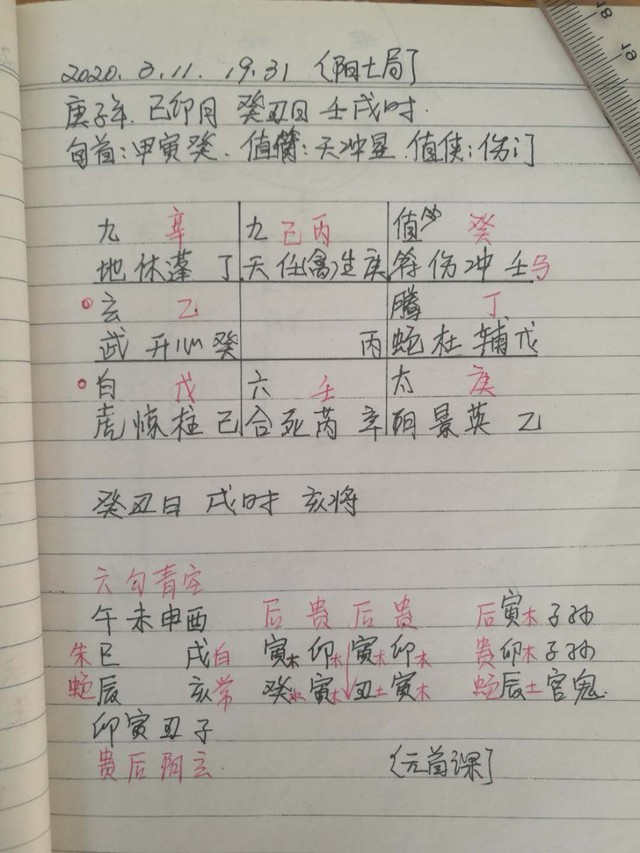 2020.3.11. 19.31 〈阳七局〉
庚子年.己卯月 癸丑日 壬戌时.
旬首:甲寅癸.值符:天冲星.值使:伤门
九 辛 九 己丙 值 癸
地休蓬 丁 天任禽生庚 符伤冲 壬马
玄 乙 腾 丁
武 开心 癸 丙 蛇杜辅戊
白 戊 六 壬 太 庚
虎惊柱己 合死芮 辛 阴景英 乙
癸丑日 戌时 亥将
六勾青空
午未申酉 后贵后贵 后寅木子孙
朱巳 戌白 寅木卯木寅木卯木 贵卯木子孙
蛇辰 亥常 癸水寅木丑土寅木 蛇辰土官鬼
卯寅丑子
贵后阴玄. 〈元首课〉